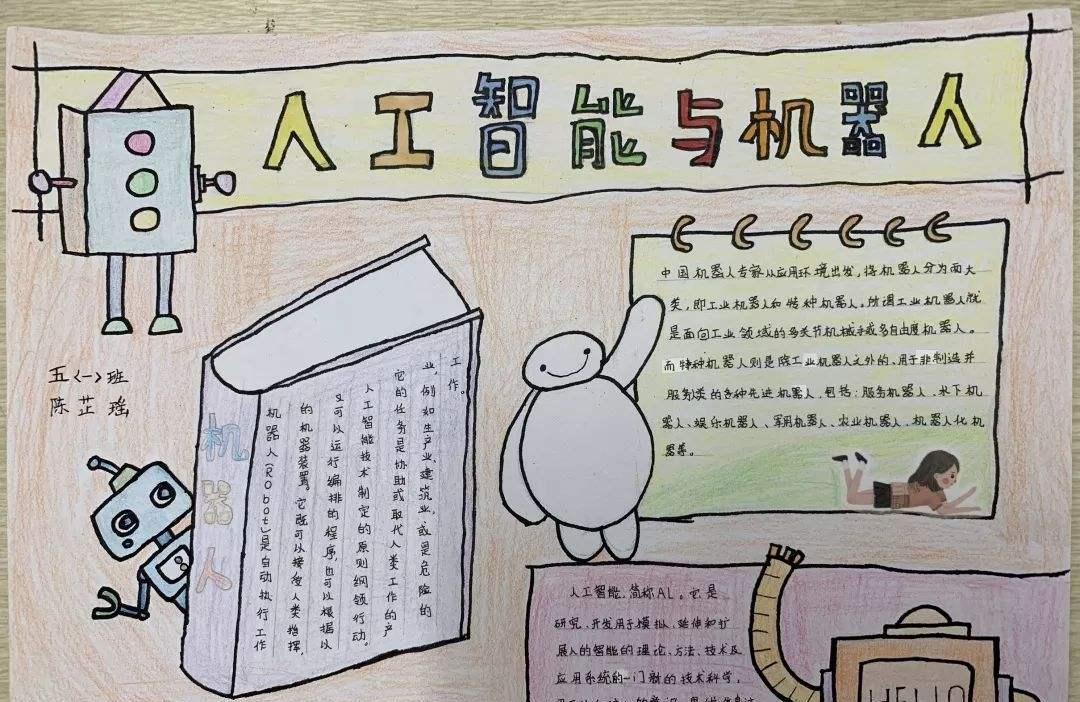 人工智能与机器人
五<一>班
陈芷瑶
机器人
机器人(Robot)是自动执行工作
的机器装置。它既可以接受人类指挥,
又可以运行编排的程序,也可以根据以
人工智能技术制定的原则纲领行动。
它的任务是协助或取代人类工作的产
业,例如生产业,建筑业,或是危险的
工作。
中国机器人专家从应用环境出发,将机器人分为两大
类,即工业机器人和特种机器人。所谓工业机器人就
是面向工业领域的多关节机械手或多自由度机器人。
而特种机器人则是除工业机器人之外的、用于非制造并
服务类的各种先进机器人,包括:服务机器人、水下机
器人、娱乐机器人、军用机器人、农业机器人、机器人化机
器等。
人工智能,简称AL。它是
研究、开发用于模拟、延伸和扩
展人的智能的理论、方法、技术及
应用系统的一门新的技术科学,
HELLO